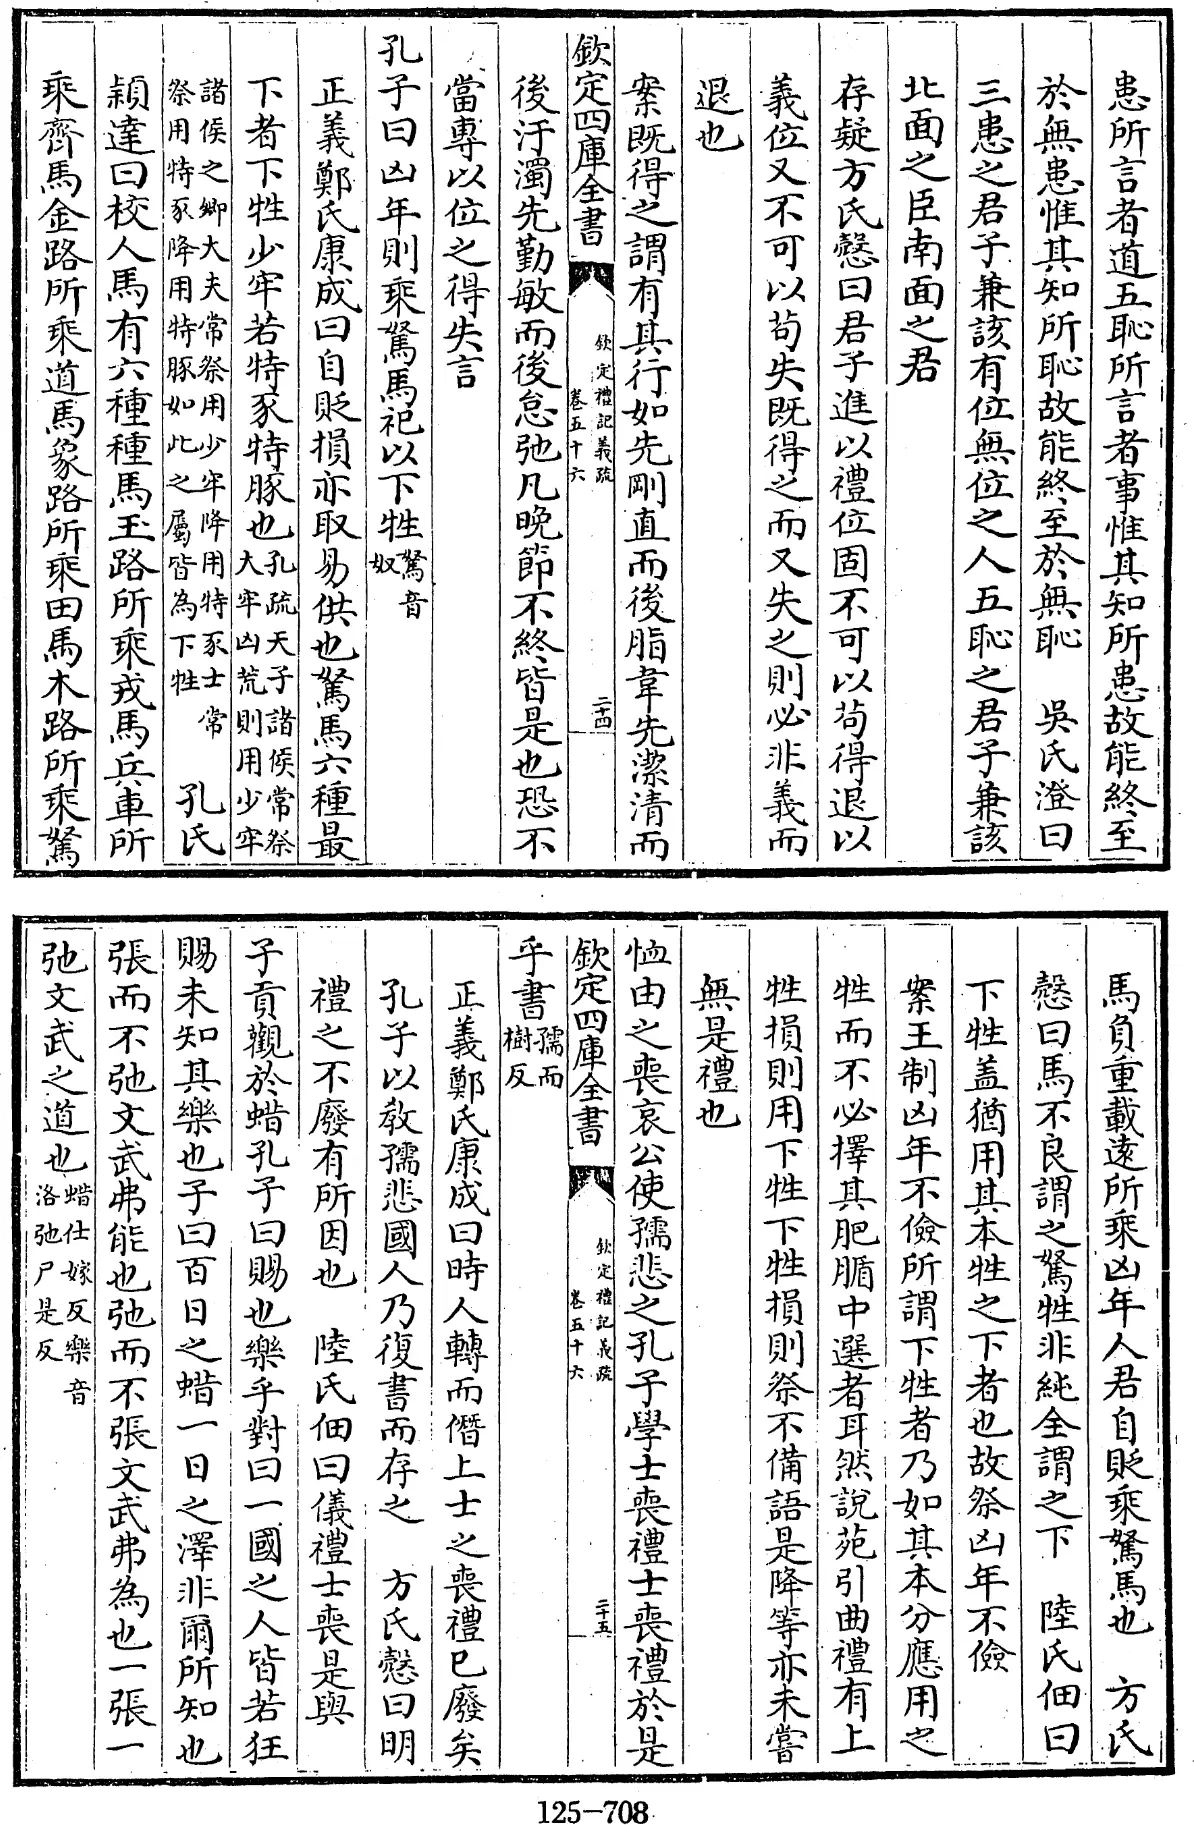 患所言者道五恥所言者事惟其知所患故能終至
於無患惟其知所恥故能終至於無恥　吳氏澄曰
三患之君子兼該有位無位之人五恥之君子兼該
北面之臣南面之君
存疑方氏慤曰君子進以禮位固不可以苟得退以
義位又不可以苟失既得之而又失之則必非義而
退也
案既得之謂有其行如先剛直而後脂韋先潔清而
欽定四庫全書
欽定禮記義疏
卷五十六
二十四
後汙濁先勤敏而後怠弛凡晚節不終皆是也恐不
當專以位之得失言
孔子曰凶年則乘駑馬祀以下牲駑音奴
正義鄭氏康成曰自貶損亦取易供也駑馬六種最
下者下牲少牢若特豕特豚也孔疏天子諸侯常祭大牢凶荒則用少牢
諸侯之卿大夫常祭用少牢降用特豕士常祭用特豕降用特豚如此之屬皆為下牲　孔氏
穎達曰校人馬有六種種馬玉路所乘戎馬兵車所
乘齊馬金路所乘道馬象路所乘田馬木路所乘駑
馬負重載遠所乘凶年人君自貶乘駑馬也　方氏
慤曰馬不良謂之駑牲非純全謂之下　陸氏佃曰
下牲盖猶用其本牲之下者也故祭凶年不儉
案王制凶年不儉所謂下牲者乃如其本分應用之
牲而不必擇其肥腯中選者耳然說苑引曲禮有上
牲損則用下牲下牲損則祭不備語是降等亦未嘗
無是禮也
恤由之喪哀公使孺悲之孔子學士喪禮士喪禮於是
欽定四庫全書
欽定禮記義疏
卷五十六
二十五
乎書孺而樹反
正義鄭氏康成曰時人轉而僭上士之喪禮已廢矣
孔子以教孺悲國人乃復書而存之　方氏慤曰明
禮之不廢有所因也　陸氏佃曰儀禮士喪是與
子貢觀於蜡孔子曰賜也樂乎對曰一國之人皆若狂
賜未知其樂也子曰百日之蜡一日之澤非爾所知也
張而不弛文武弗能也弛而不張文武弗為也一張一
弛文武之道也蜡仕嫁反樂音洛弛尸是反
125-708